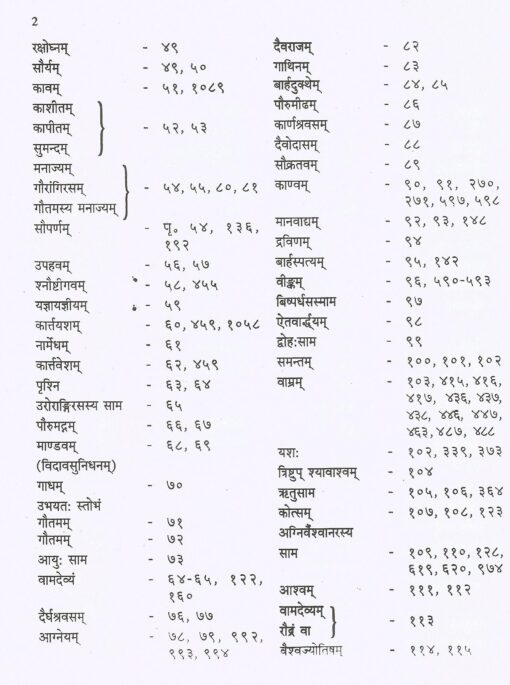 2
रक्षोघ्नम् - ४९
सौर्यम् - ४९, ५०
कावम् - ५१, १०८९
काशीतम्
कापीतम् - ५२, ५३
सुमन्दम्
मनाज्यम्
गौरांगिरसम् - ५४, ५५, ८०, ८१
गौतमस्य मनाज्यम्
सौपर्णम् - पृ० ५४, १३६,
१९२
उपहवम् - ५६, ५७
श्नौष्टीगवम् - ५८, ४५५
यज्ञायज्ञीयम् - ५९
कार्त्तयशम् - ६०, ४५९, १०५८
नार्मेधम् - ६१
कार्त्तवेशम् - ६२, ४५९
पृश्नि - ६३, ६४
उरोराङ्गिरसस्य साम - ६५
पौरुमद्गम् - ६६, ६७
माण्डवम् - ६८, ६९
(विदावसुनिधनम्)
गाधम् - ७०
उभयतः स्तोभं
गौतमम् - ७१
गौतमम् - ७२
आयुः साम - ७३
वामदेव्यं - ६४-६५, १२२,
१६०
दैर्घश्रवसम् - ७६, ७७
आग्नेयम् - ७८, ७९, ९९२,
९९३, ९९४
दैवराजम् - ८२
गाथिनम् - ८३
बार्हदुक्थेम् - ८४, ८५
पौरुमीढम् - ८६
कार्णश्रवसम् - ८७
दैवोदासम् - ८८
सौक्रतवम् - ८९
काण्वम् - ९०, ९१, २७०,
२७१, ५९७, ५९८
मानवाद्यम् - ९२, ९३, १४८
द्रविणम् - ९४
बार्हस्पत्यम् - ९५, १४२
वीङ्कम् - ९६, ५९०-५९३
बिष्पर्धसस्माम - ९७
ऐतवार्द्धयम् - ९८
द्वोहःसाम - ९९
समन्तम् - १००, १०१, १०२
वाम्रम् - १०३, ४१५, ४१६,
४१७, ४३६, ४३७,
४३८, ४४६, ४४७,
४६३, ४८७, ४८८
यशः - १०२, ३३९, ३७३
त्रिष्टुप् श्यावाश्वम् - १०४
ऋतुसाम - १०५, १०६, ३६४
कोत्सम् - १०७, १०८, १२३
अग्निर्वैश्वानरस्य
साम - १०९, ११०, १२८,
६१९, ६२०, ९७४
आश्वम् - १११, ११२
वामदेव्यम्
रौद्रं वा - ११३
वैश्वज्योतिषम् - ११४, ११५